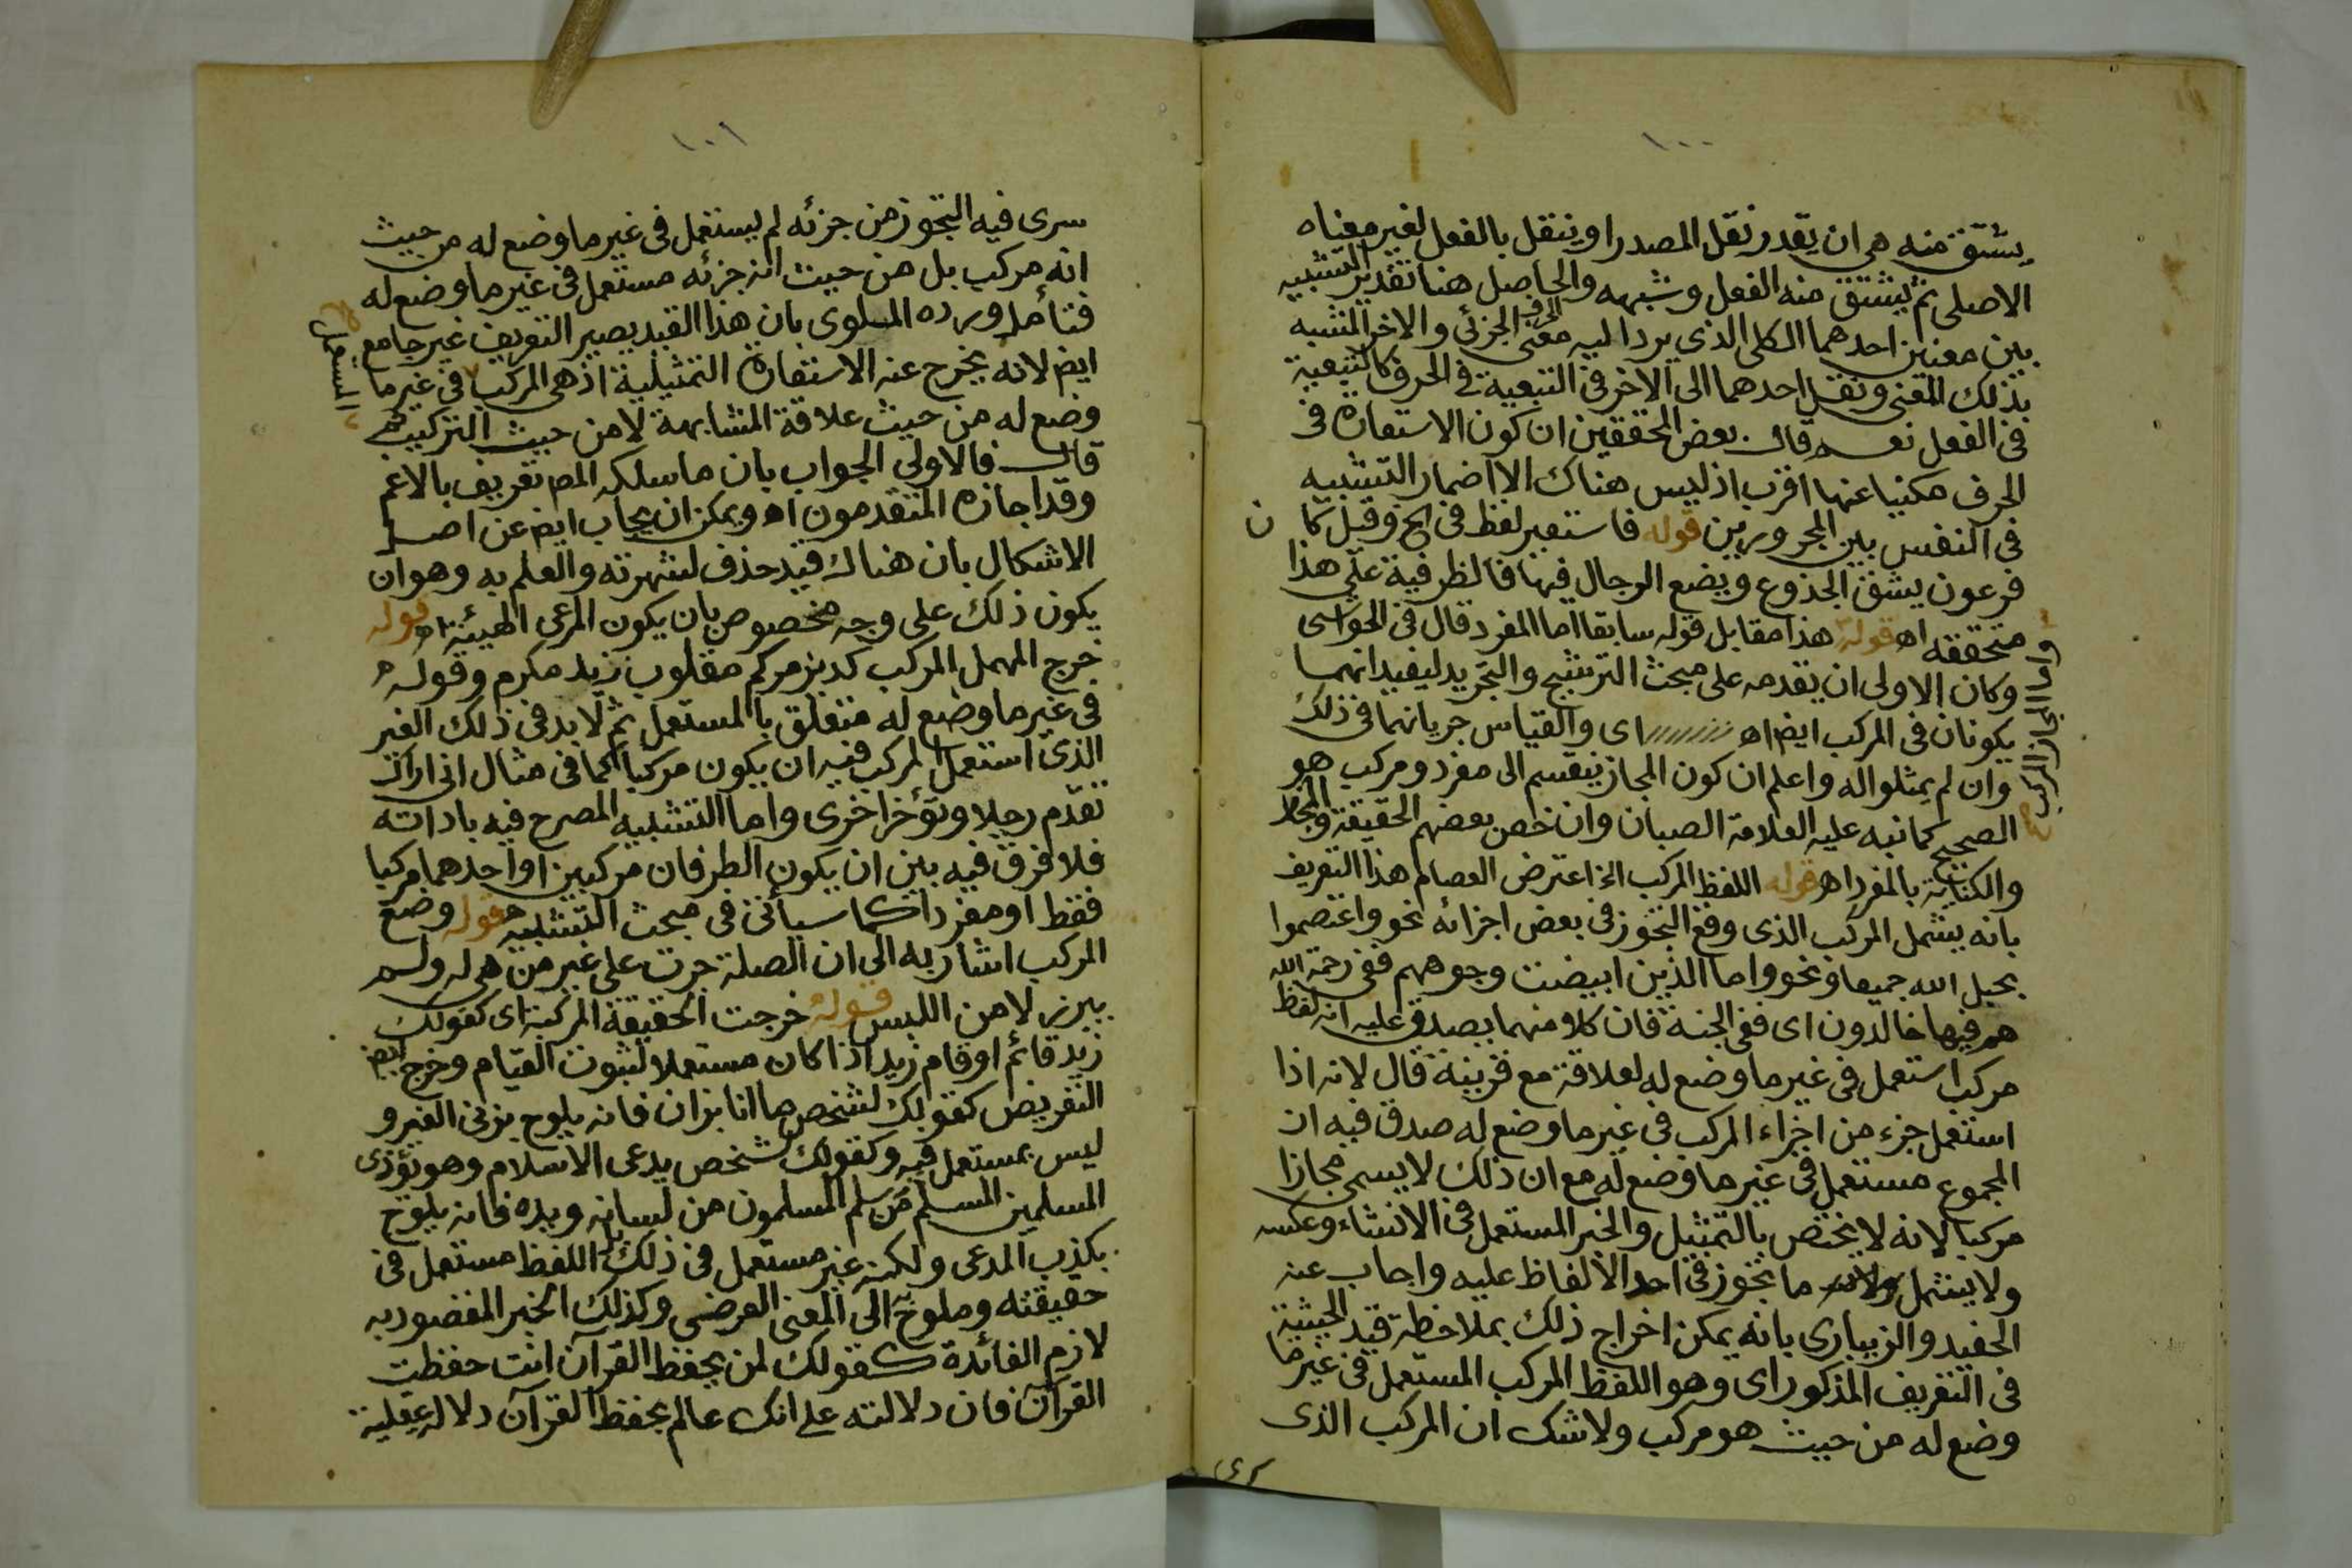 ١٠٠
يشتق منه هي ان يقدر نقل المصدر او ينتقل بالفعل لغير معناه
الاصلي ثم يشتق منه الفعل وشبهه والحاصل هنا تقدير التشبيه
بين معنيين احدهما الكلي الذي يرد اليه معنى الحرف الجزئي والاخر المشبه
بذلك المعنى ونقل احدهما الى الاخر فالتبعية في الحرف كالتبعية
في الفعل نعم قال بعض المحققين ان كون الاستعارة في
الحرف مكنيا عنها اقرب اذ ليس هناك الا اضمار التشبيه
في النفس بين المجرورين قوله فاستعير لفظ في الخ وقيل كان
فرعون يشق الجذوع ويضع الرجال فيها فالظرفية على هذا
متحققة اه قوله هذا مقابل قوله سابقا اما المفرد قال في الحواشي
واما المجاز المركب صح
وكان الاولى ان يقدمه على مبحث الترشيح والتجريد ليفيد انهما
يكونان في المركب ايض اه اى والقياس جريانهما في ذلك
وان لم يمثلوا له واعلم ان كون المجاز ينقسم الى مفرد ومركب هو
الصحيح كما نبه عليه العلامة الصبان وان خص بعضهم الحقيقة والمجاز
والكناية بالمفرد اه قوله اللفظ المركب الخ اعترض العصام هذا التعريف
بانه يشمل المركب الذى وقع التجوز في بعض اجزائه نحو واعتصموا
بحبل الله جميعا ونحو واما الذين ابيضت وجوههم ففى رحمة الله
هم فيها خالدون اى ففى الجنة فان كلا منهما يصدق عليه انه لفظ
مركب استعمل في غير ما وضع له لعلاقة مع قرينة قال لانه اذا
استعمل جزء من اجزاء المركب في غير ما وضع له صدق فيه ان
المجموع مستعمل في غير ما وضع له مع ان ذلك لا يسمى مجازا
مركبا لانه لا يختص بالتمثيل والخبر المستعمل في الانشاء وعكسه
ولا يشمل ما تجوز في احد الالفاظ عليه واجاب عنه
الحفيد والزيبارى بانه يمكن اخراج ذلك بملاحظة قيد الحيثية
في التعريف المذكور اى وهو اللفظ المركب المستعمل في غير ما
وضع له من حيث هو مركب ولا شك ان المركب الذى
سرى
١٠١
سرى فيه التجوز من جزئه لم يستعمل في غير ما وضع له من حيث
انه مركب بل من حيث ان جزئه مستعمل في غير ما وضع له
فتأمل ورده الملوى بان هذا القيد يصير التعريف غير جامع
ايض لانه يخرج عنه الاستعارة التمثيلية اذ هى المركب في غير ما
المستعمل صح
وضع له من حيث علاقة المشابهة لا من حيث التركيب ثم
قال فالاولى الجواب بان ما سلكه المص تعريف بالاعم
وقد اجازه المتقدمون اه ويمكن ان يجاب ايض عن اصل
الاشكال بان هناك قيد حذف لشهرته والعلم به وهو ان
يكون ذلك على وجه مخصوص بان يكون المرعى الهيئة اه قوله
خرج المهمل المركب كديز مركم مقلوب زيد مكرم وقوله
في غير ما وضع له متعلق بالمستعمل ثم لا بد في ذلك الغير
الذى استعمل المركب فيه ان يكون مركبا كما في مثال انى اراك
تقدم رجلا وتؤخر اخرى واما التشبيه المصرح فيه باداته
فلا فرق فيه بين ان يكون الطرفان مركبين او احدهما مركبا
فقط او مفردا كما سيأتى في مبحث التشبيه قوله وضع
المركب اشار به الى ان الصلة جرت على غير من هى له ولم
يبرز لامن اللبس قوله خرجت الحقيقة المركبة اى كقولك
زيد قائم او قام زيد اذا كان مستعملا لثبوت القيام وخرج ايض
التعريض كقولك لشخص ما انا بزان فانه يلوح بزنى الغير و
ليس بمستعمل فيه وكقولك لشخص يدعى الاسلام وهو يؤذى
المسلمين المسلم من سلم المسلمون من لسانه ويده فانه يلوح
بكذب المدعى ولكنه غير مستعمل في ذلك بل اللفظ مستعمل في
حقيقته وملوح به الى المعنى العرضى وكذلك الخبر المقصود به
لازم الفائدة كقولك لمن يحفظ القرآن انت حفظت
القرآن فان دلالته على انك عالم بحفظ القرآن دلالة عقلية